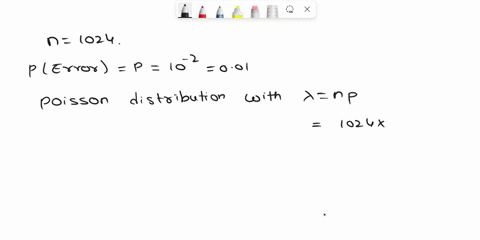 n = 1024.
P(Error) = P = 10⁻² = 0.01
Poisson distribution with λ = np
= 1024×